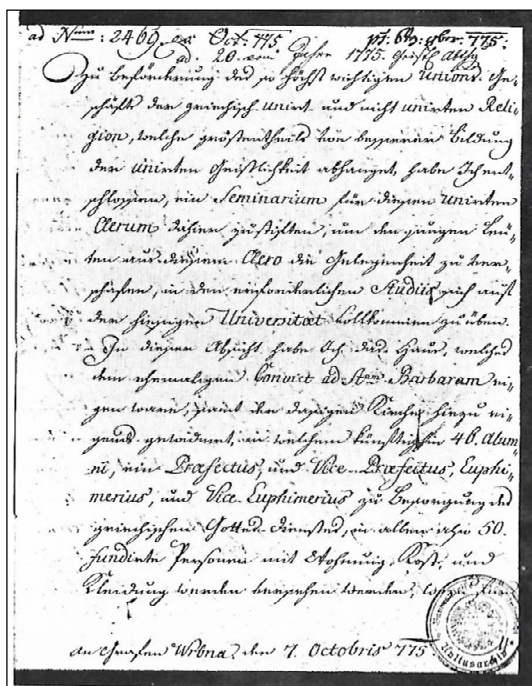 ad Num: 2469. ex Oct: 775.
ad 20. vom Jahre 1775.
Zu beförderung des so höchst wichtigen Unions-Ge-
schäfts der griechisch unirt- und nicht unirten Reli-
gion, welche gröstentheils von besserer bildung
der unirten Geistlichkeit abhanget, habe Ich ent-
schlossen, ein Seminarium für diesen unirten
Clerum dahier zu stiften, um den jungen Leu-
ten aus diesem Clero die Gelegenheit zu ver-
schafen, in den erforderlichen Studiis sich auf
der hiesigen Universitæt vollkommen zu üben.
In dieser Absicht habe Ich das Haus, welches
dem ehemaligen Convict ad Stam Barbaram ei-
gen ware, samt der dasigen Kirche hiezu ei-
gends gewidmet, in welchem künftighin 46. Alum-
ni, ein Præfectus, und Vice-Præfectus, Euphi-
merius, und Vice-Euphimerius zu Besorgung des
griechischen Gottes-Dienstes, in allem also 50.
fundirte Personen mit Wohnung, Kost, und
Kleidung werden versehen werden,
an Grafen Wrbna, den 7. Octobris 775